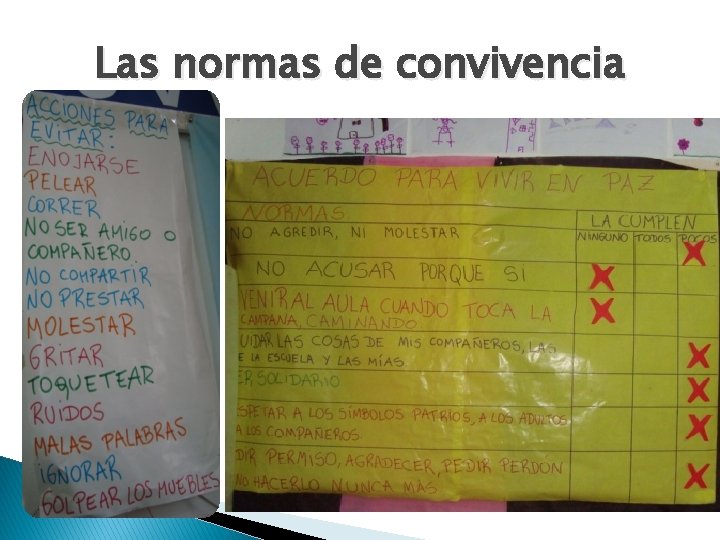 Las normas de convivencia
ACCIONES PARA
EVITAR:
ENOJARSE
PELEAR
CORRER
NO SER AMIGO O
COMPAÑERO.
NO COMPARTIR
NO PRESTAR
MOLESTAR
GRITAR
TOQUETEAR
RUIDOS
MALAS PALABRAS
IGNORAR
GOLPEAR LOS MUEBLES
ACUERDO PARA VIVIR EN PAZ
NORMAS
LA CUMPLEN
NINGUNO TODOS POCOS
NO AGREDIR, NI MOLESTAR
X
NO ACUSAR PORQUE SI
X
VENIR AL AULA CUANDO TOCA LA
CAMPANA, CAMINANDO
X
UIDAR LAS COSAS DE MIS COMPAÑEROS, LAS
E LA ESCUELA Y LAS MÍAS.
X
ER SOLIDARIO
X
SPETAR A LOS SÍMBOLOS PATRIOS, A LOS ADULTOS
A LOS COMPAÑEROS.
X
DIR PERMISO, AGRADECER, PEDIR PERDÓN
NO HACERLO NUNCA MÁS
X